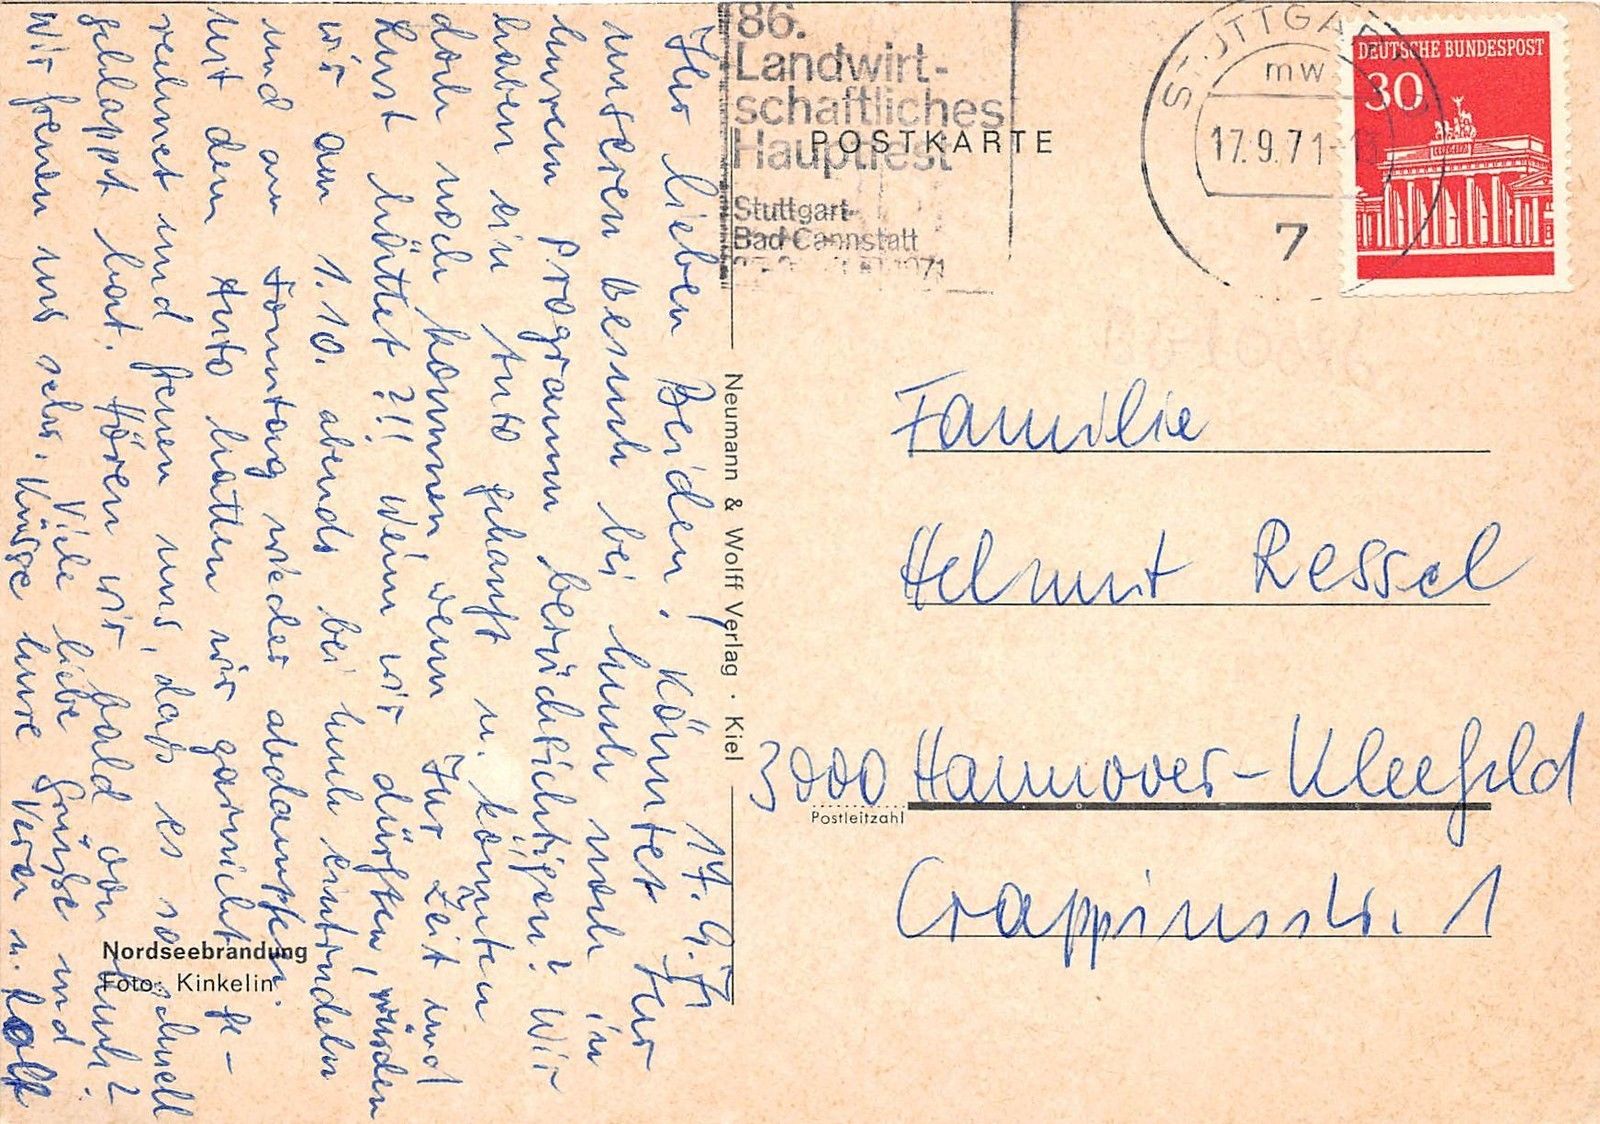 17.9.71
Ihr lieben Beiden, könntet Ihr
unseren Besuch bei Euch noch in
Eurem Programm berücksichtigen? Wir
haben ein Auto gekauft u. könnten
doch noch kommen, wenn Ihr Zeit und
Lust hättet?!! Wenn wir dürften, würden
wir am 1.10. abends bei Euch eintrudeln
und am Sonntag wieder abdampfen.
Mit dem Auto hatten wir garnicht ge-
rechnet und freuen uns, daß es so schnell
geklappt hat. Hören wir bald von Euch?
Wir freuen uns sehr. Viele liebe Grüße und
Küsse Eure Vera u. Rolf
Nordseebrandung
Foto: Kinkelin
Neumann & Wolff Verlag · Kiel
86.
Landwirt-
schaftliches
Hauptfest
Stuttgart-
Bad Cannstatt
1971
POSTKARTE
STUTTGART
mw
17.9.71-13
7
DEUTSCHE BUNDESPOST
30
Familie
Helmut Ressel
3000 Hannover-Kleefeld
Postleitzahl
Crappiusstr. 1